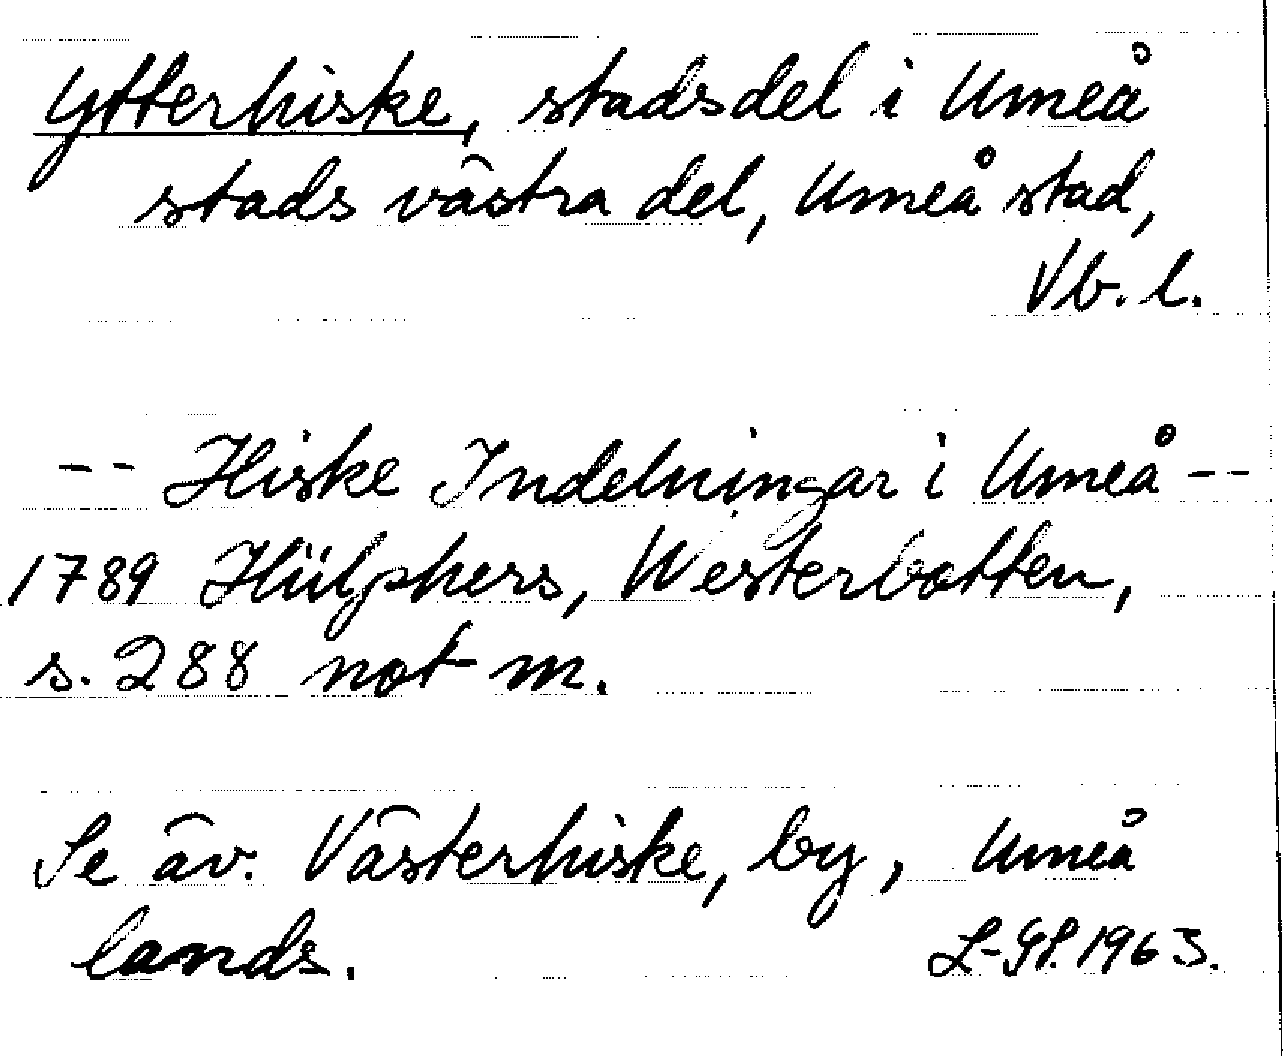 Ytterhiske, stadsdel i Umeå
stads västra del, Umeå stad,
Vb. l.
-- Hiske Indelningar i Umeå --
1789 Hülphers, Westerbotten,
s. 288 not m.
Se äv. Västerhiske, by, Umeå
lands. L-GP. 1963.